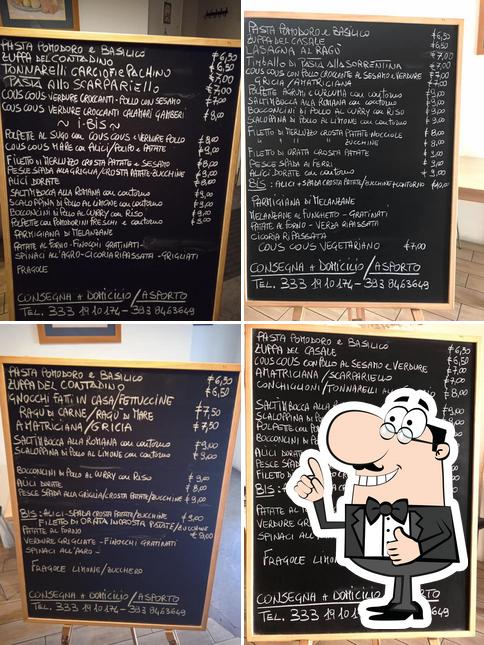 PASTA POMODORO e BASILICO €6,50
ZUPPA DEL CONTADINO €6,50
TONNARELLI CARCIOFI e PACHINO €7,00
PASTA ALLO SCARPARIELLO €7,00
COUS COUS VERDURE CROCCANTI-POLLO CON SESAMO €7,00
COUS COUS VERDURE CROCCANTI CALAMARI GAMBERI €8,00
~ I BIS ~
POLPETTE AL SUGO CON COUS COUS e VERDURE POLLO €8,00
COUS COUS MARE CON ALICI/POLPO e PATATE €9,00
FILETTO DI MERLUZZO CROSTA PATATE e SESAMO €8,00
PESCE SPADA ALLA GRIGLIA/CROSTA PATATE-ZUCCHINE €9,00
ALICI DORATE €8,00
SALTIMBOCCA ALLA ROMANA con contorno €9,00
SCALOPPINA DI POLLO AL LIMONE con contorno €9,00
BOCCONCINI DI POLLO AL CURRY con RISO €9,00
POLPETTE con POMODORINI FRESCHI e contorno
PARMIGIANA DI MELANZANE
PATATE AL FORNO-FINOCCHI GRATINATI-
SPINACI ALL'AGRO-CICORIA RIPASSATA-GRIGLIATI
FRAGOLE
CONSEGNA A DOMICILIO/ASPORTO
TEL. 333 1910174-393 8463649
PASTA POMODORO e BASILICO €6,50
ZUPPA DEL CASALE €6,50
LASAGNA AL RAGÙ €7,00
TIMBALLO DI PASTA ALLA SORRENTINA €7,00
COUS COUS CON POLLO CROCCANTE AL SESAMO e VERDURE €7,00
GRICIA/AMATRICIANA €7,00
POLPETTE AGRUMI e CURCUMA con contorno €9,00
SALTIMBOCCA ALLA ROMANA con contorno €9,00
BOCCONCINI DI POLLO AL CURRY con RISO €9,00
SCALOPPINA DI POLLO AL LIMONE con contorno €9,00
FILETTO DI MERLUZZO CROSTA PATATE NOCCIOLE €8,00
" " " " ZUCCHINE €8,00
FILETTO DI ORATA CROSTA PATATE €9,00
PESCE SPADA AI FERRI €9,00
ALICI DORATE con contorno €9,00
BIS: ALICI+SPADA CROSTA PATATE/ZUCCHINE+CONTORNO €10,00
PARMIGIANA DI MELANZANE
MELANZANE AL FUNGHETTO - GRATINATI
PATATE AL FORNO - VERZA RIPASSATA
CICORIA RIPASSATA
COUS COUS VEGETARIANO €7,00
CONSEGNA A DOMICILIO/ASPORTO
TEL. 333 1910174-393 8463649
PASTA POMODORO e BASILICO €6,50
ZUPPA DEL CONTADINO €6,50
GNOCCHI FATTI IN CASA/FETTUCCINE
RAGÙ DI CARNE/RAGÙ DI MARE €7,50
AMATRICIANA/GRICIA €7,50
SALTIMBOCCA ALLA ROMANA con contorno €9,00
SCALOPPINA DI POLLO AL LIMONE con contorno €9,00
BOCCONCINI DI POLLO AL CURRY con RISO €9,00
ALICI DORATE €8,00
PESCE SPADA ALLA GRIGLIA/CROSTA PATATE/ZUCCHINE €9,00
BIS: ALICI-SPADA CROSTA PATATE/ZUCCHINE €9,00
FILETTO DI ORATA IN CROSTA PATATE/ZUCCHINE €9,00
PATATE AL FORNO
VERDURE GRIGLIATE - FINOCCHI GRATINATI
SPINACI ALL'AGRO -
FRAGOLE LIMONE/ZUCCHERO
CONSEGNA A DOMICILIO/ASPORTO
TEL. 333 1910174-393 8463649
PASTA POMODORO e BASILICO €6,50
ZUPPA DEL CASALE €6,50
COUS COUS CON POLLO AL SESAMO e VERDURE €7,00
AMATRICIANA/SCARPARIELLO €7,00
CONCHIGLIONI/TONNARELLI AL €8,00
SALTIMBOCCA ALLA
SCALOPPINA DI
POLPETTE CON
BOCCONCINI DI
ALICI DORATE
PESCE SPADA
FILETTO DI
BIS:
PATATE AL
VERDURE GRI
SPINACI ALL'
FRAGOLE LIMON
CONSEGNA A DOMICILIO/ASPORTO
TEL. 333 1910 8463649